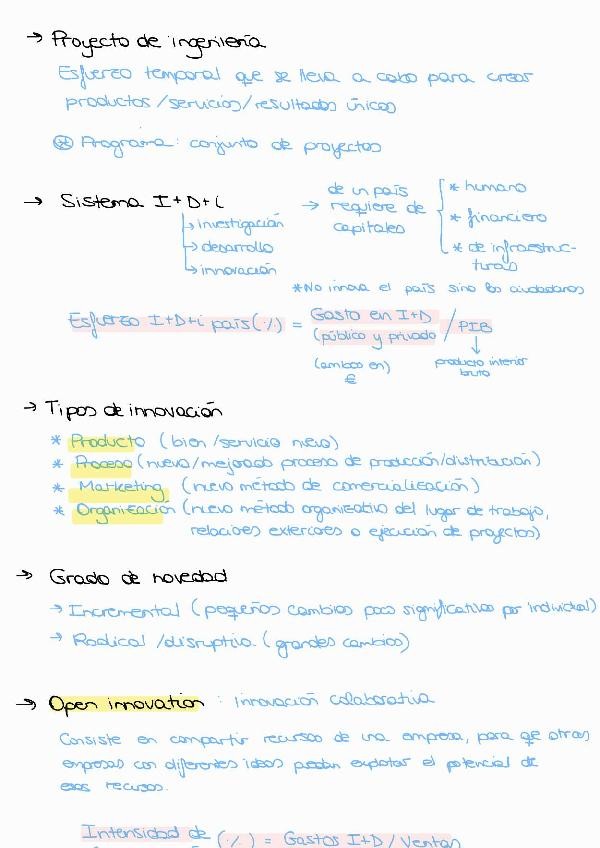 → Proyecto de ingeniería
Esfuerzo temporal que se lleva a cabo para crear
productos/servicios/resultados únicos
⊛ Programa: conjunto de proyectos
→ Sistema I+D+i
→ investigación
→ desarrollo
→ innovación
→ de un país
requiere de
capitales
* humano
* financiero
* de infraestruc-
turas
*No innova el país sino los ciudadanos
Esfuerzo I+D+i país (%) = Gasto en I+D (público y privado) / PIB
(ambos en)
€
↓
producto interior
bruto
→ Tipos de innovación
* Producto (bien/servicio nuevo)
* Proceso (nuevo/mejorado proceso de producción/distribución)
* Marketing (nuevo método de comercialización)
* Organización (nuevo método organizativo del lugar de trabajo,
relaciones exteriores o ejecución de proyectos)
→ Grado de novedad
→ Incremental (pequeños cambios poco significativos por individual)
→ Radical/disruptiva (grandes cambios)
→ Open innovation: innovación colaborativa
Consiste en compartir recursos de una empresa, para que otras
empresas con diferentes ideas puedan explotar el potencial de
esos recursos.
Intensidad de (%) = Gastos I+D / Ventas